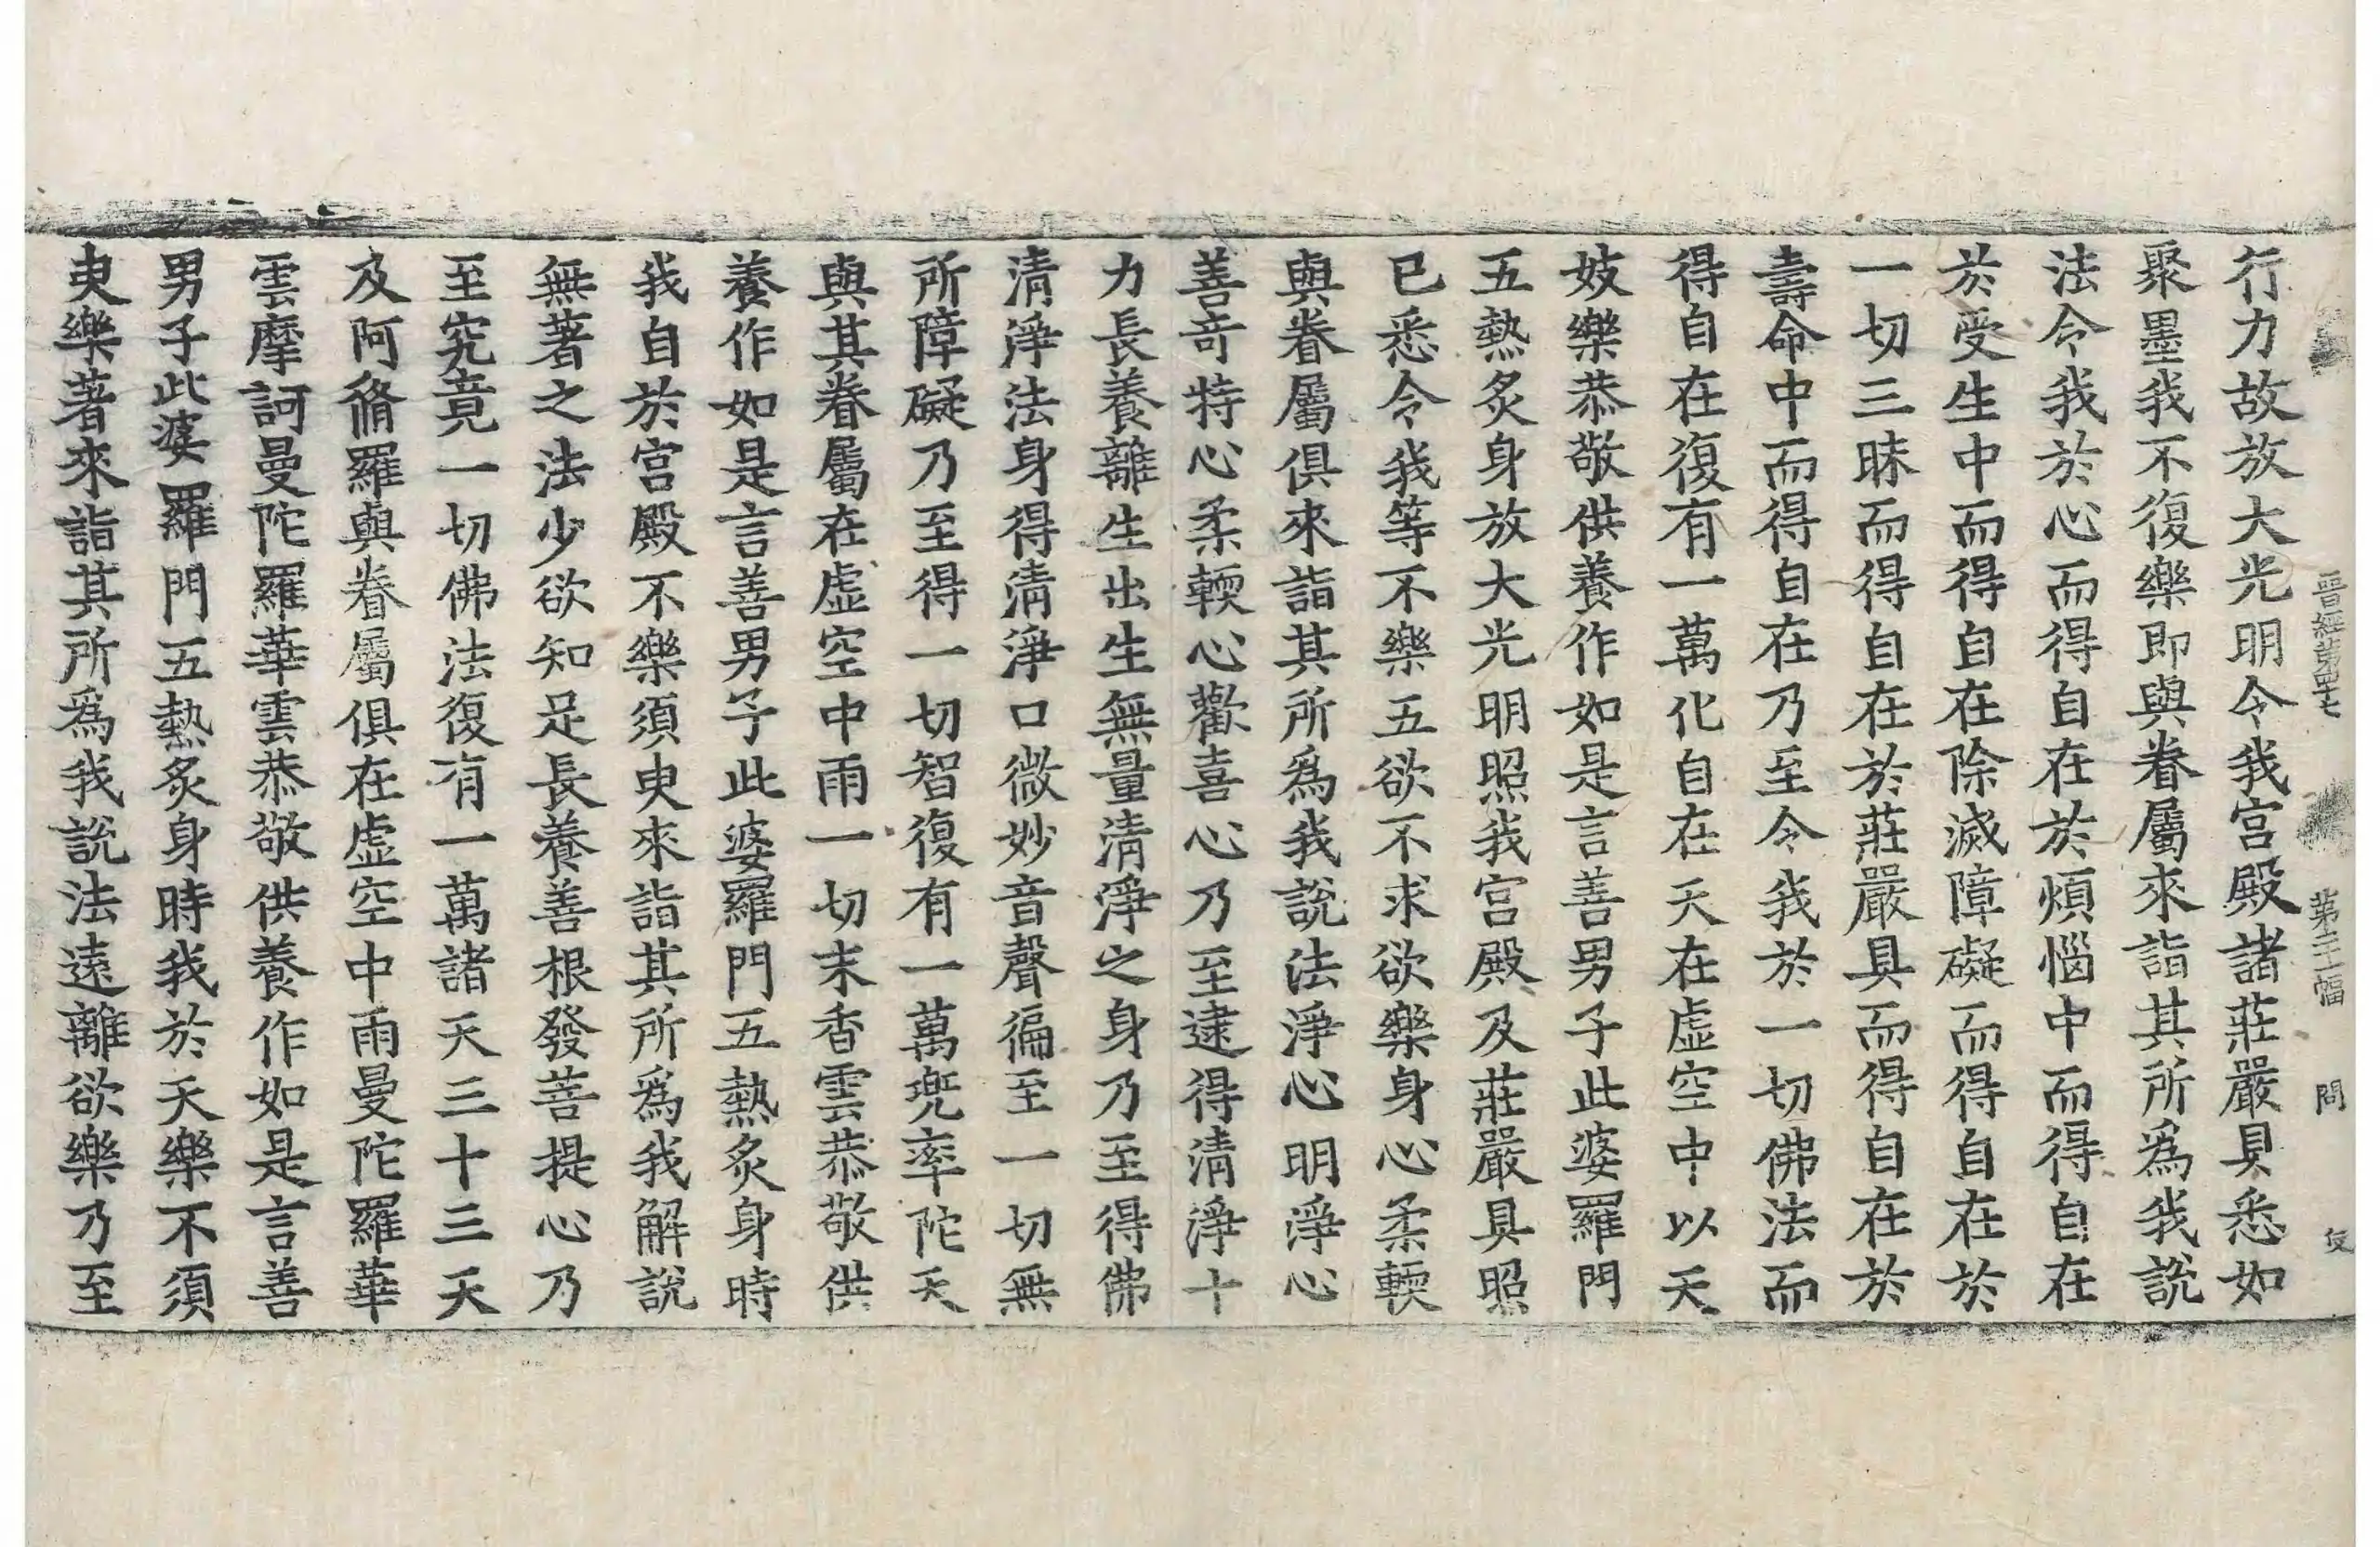 晋經第四十七　第二十三幅　問　伩
行力故放大光明令我宫殿諸莊嚴具悉如
聚墨我不復樂即與眷屬來詣其所爲我說
法令我於心而得自在於煩惱中而得自在
於受生中而得自在除滅障礙而得自在於
一切三昧而得自在於莊嚴具而得自在於
壽命中而得自在乃至令我於一切佛法而
得自在復有一萬化自在天在虛空中以天
妓樂恭敬供養作如是言善男子此婆羅門
五熱炙身放大光明照我宫殿及莊嚴具照
已悉令我等不樂五欲不求欲樂身心柔輭
與眷屬俱來詣其所爲我說法淨心明淨心
善竒特心柔輭心歡喜心乃至逮得清淨十
力長養離生出生無量清淨之身乃至得佛
清淨法身得清淨口微妙音聲徧至一切無
所障礙乃至得一切智復有一萬兜率陀天
與其眷屬在虛空中雨一切末香雲恭敬供
養作如是言善男子此婆羅門五熱炙身時
我自於宫殿不樂須臾來詣其所爲我解說
無著之法少欲知足長養善根發菩提心乃
至究竟一切佛法復有一萬諸天三十三天
及阿脩羅與眷屬俱在虛空中雨曼陀羅華
雲摩訶曼陀羅華雲恭敬供養作如是言善
男子此婆羅門五熱炙身時我於天樂不須
臾樂著來詣其所爲我說法遠離欲樂乃至